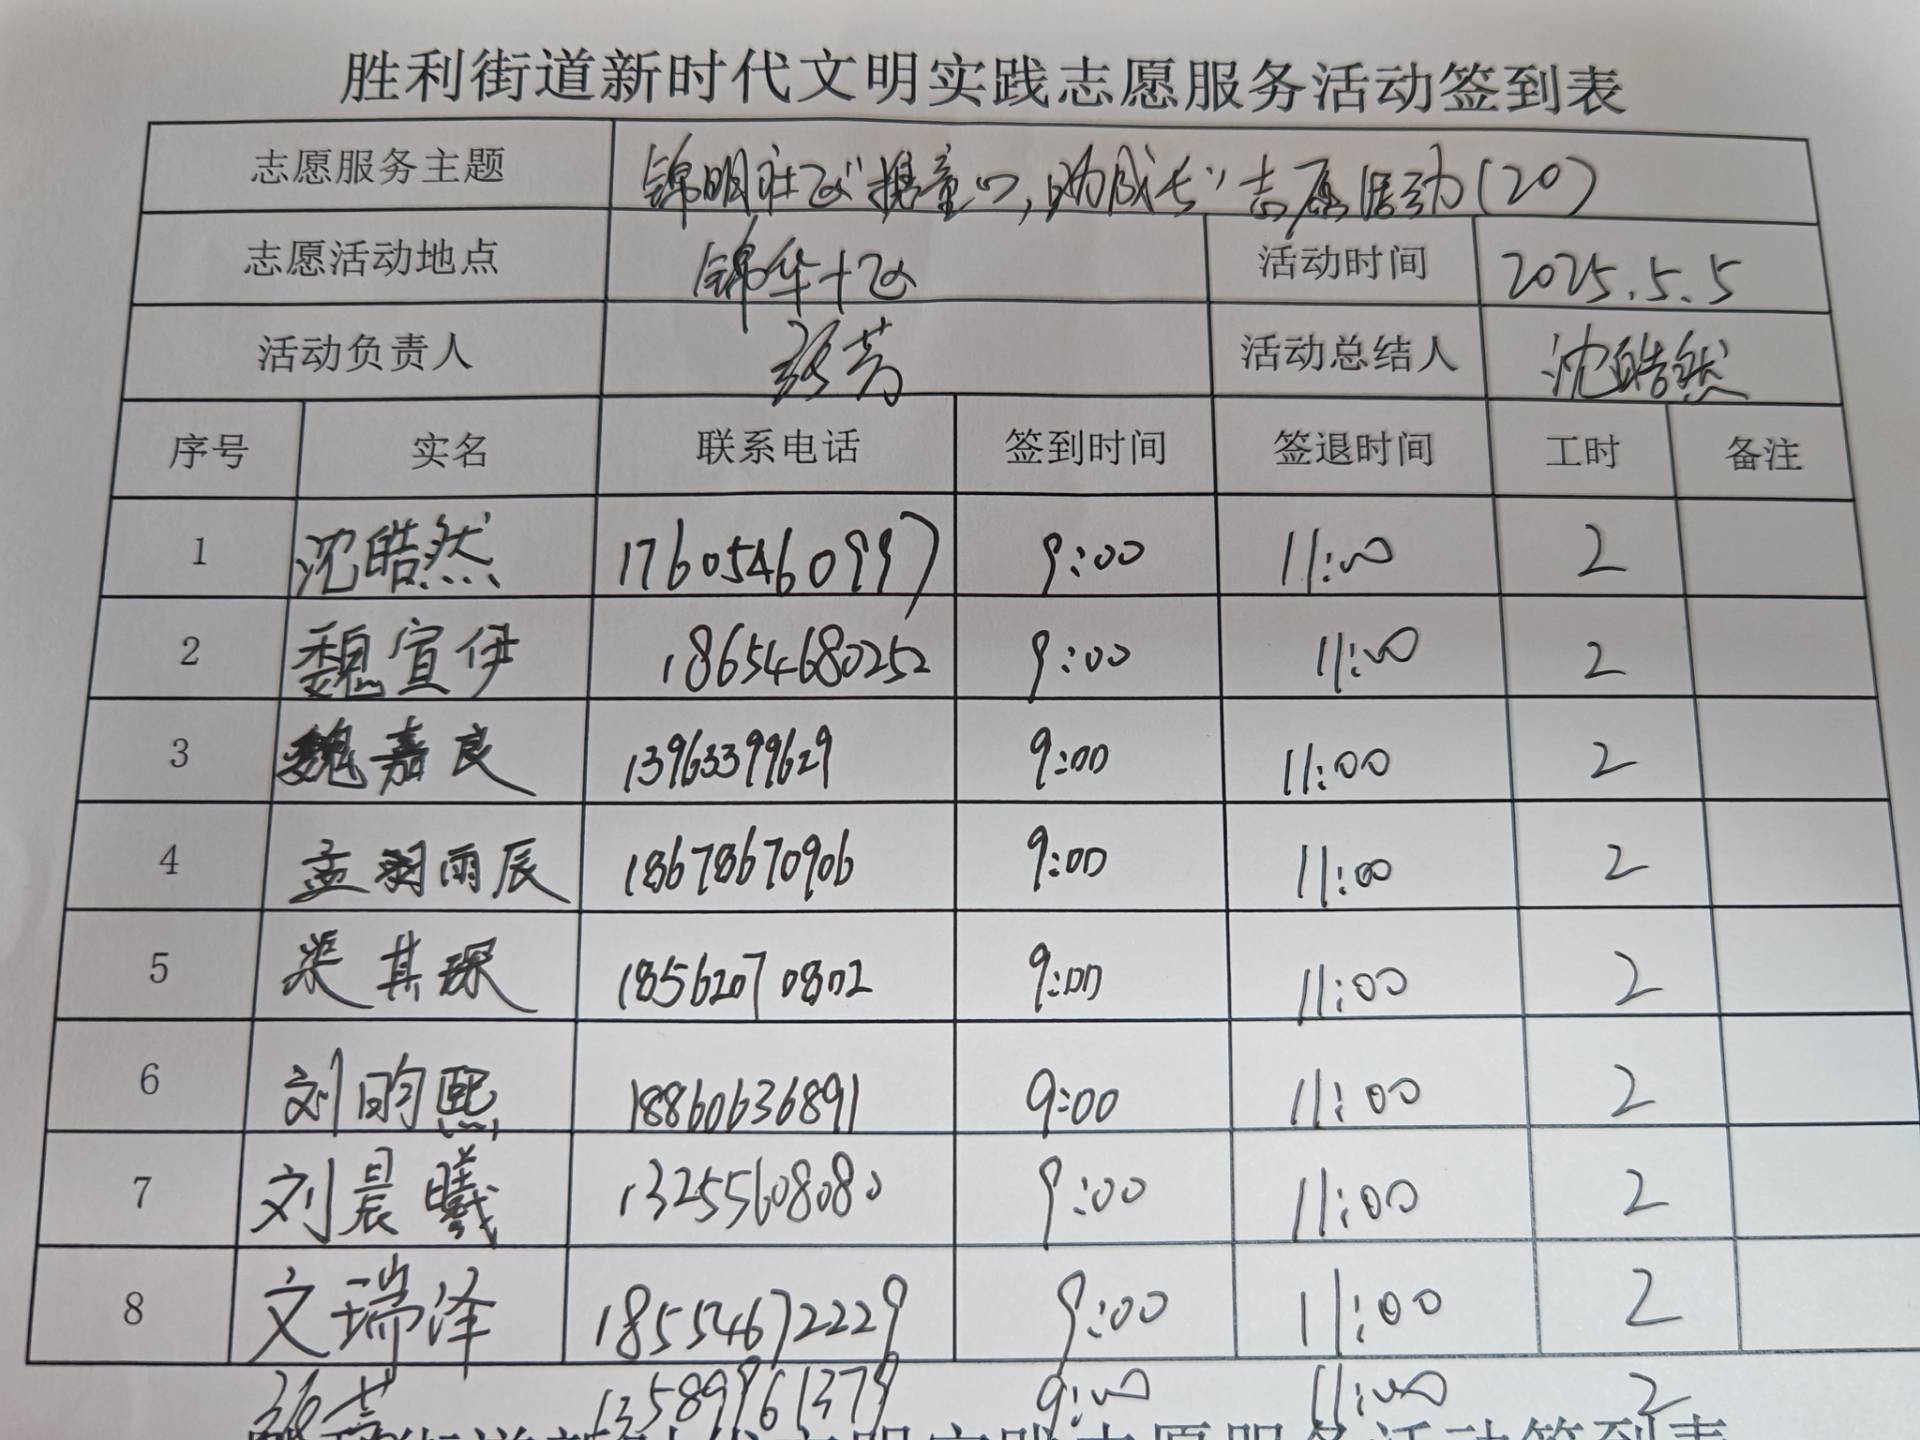 胜利街道新时代文明实践志愿服务活动签到表
志愿服务主题 锦明社区“携童心,助成长”志愿活动(20)
志愿活动地点 锦华十区 活动时间 2025.5.5
活动负责人 芳 活动总结人 沈皓然
序号 实名 联系电话 签到时间 签退时间 工时 备注
1 沈皓然 17605460997 9:00 11:00 2
2 魏宣伊 18654680252 9:00 11:00 2
3 魏嘉良 13963399629 9:00 11:00 2
4 孟 雨辰 18678670906 9:00 11:00 2
5 渠其琛 18562070802 9:00 11:00 2
6 刘昀熙 18860636891 9:00 11:00 2
7 刘晨曦 13255608080 9:00 11:00 2
8 文瑞泽 18554672229 9:00 11:00 2
13589961379 9:00 11:00 2
街道新时代文明实践志愿服务活动签到表